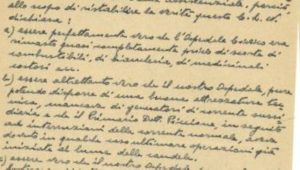 allo scopo di ristabilire la verità questo C.d.A.
dichiara:
1) essere perfettamente vero che l'Ospedale Civico era
rimasto quasi completamente privo di scorte di
combustibili, di biancheria, di medicinali
2) essere altrettanto vero che il nostro Ospedale, pure
potendo disporre di una buona attrezzatura
mancava di generatori di corrente
e che il Primario Dott. Piccione in seguito
ad interruzioni della corrente normale, aveva
dovuto in qualche caso ultimare operazioni già
iniziate al lume delle candele.
essere vero che il nostro Ospedale